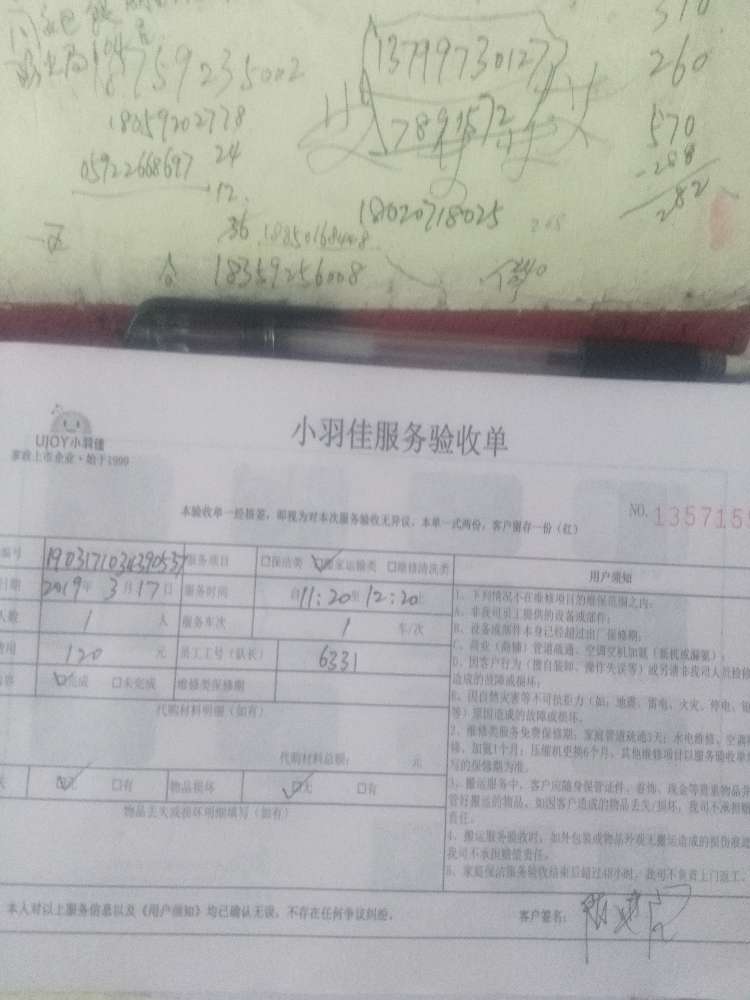 18759235002
13799730127
260
18059202778
789
570
05922668697
24
-288
12
18020718025
282
36
18850168408
18359256008
UJOY小羽佳
家政上市企业·始于1999
小羽佳服务验收单
本验收单一经签签,即视为对本次服务验收无异议。本单一式两份,客户留存一份(红)
NO. 1357155
编号 190317103439053 服务项目 □保洁类 ☑搬家运输类 □维修清洗类
日期 2019年3月17日 服务时间 自11:20至12:20止
人数 1 人 服务车次 1 车/次
费用 120 元 员工工号(队长) 6331
☑完成 □未完成 维修类保修期
代购材料明细(如有)
代购材料总额: 元
☑无 □有 物品损坏 ☑无 □有
物品丢失或损坏明细填写(如有)
用户须知
1、下列情况不在维修项目的维保范围之内:
A、非我司员工提供的设备或部件;
B、设备或部件本身已经超过出厂保修期;
C、商业(商铺)管道疏通、空调空机加氟(新机或漏氟);
D、因客户行为(擅自装卸、操作失误等)或另请非我司人员检修
造成的故障或损坏;
E、因自然灾害等不可抗拒力(如:地震、雷电、火灾、停电、
等)原因造成的故障或损坏。
2、维修类服务免费保修期:家庭管道疏通3天;水电维修、空调
修、加氟1个月;压缩机更换6个月。其他维修项目以服务验收单
写的保修期为准。
3、搬运服务中,客户应随身保管证件、首饰、现金等贵重物品并
管好搬运的物品,如因客户造成的物品丢失/损坏,我司不承担赔
责任。
4、搬运服务验收时,如外包装或物品外观无搬运造成的损伤痕迹
我司不承担赔偿责任。
5、家庭保洁服务验收结束后超过48小时,我司不负责上门返工。
本人对以上服务信息以及《用户须知》均已确认无误,不存在任何争议纠纷。
客户签名: